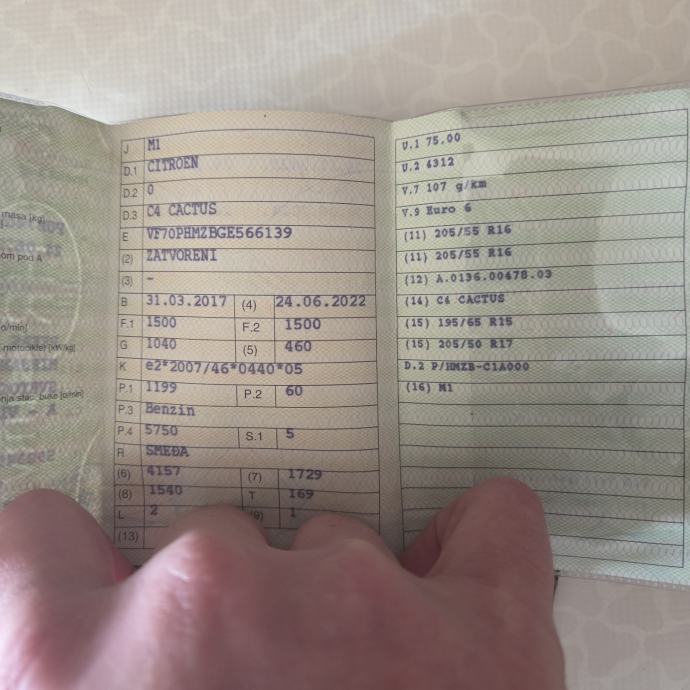 masa [kg]
om pod A
o/min]
motocikle) [kW/kg]
nja staj. buke [o/min]
J M1
D.1 CITROEN
D.2 0
D.3 C4 CACTUS
E VF70PHMZBGE566139
(2) ZATVORENI
(3) -
B 31.03.2017 (4) 24.06.2022
F.1 1500 F.2 1500
G 1040 (5) 460
K e2*2007/46*0440*05
P.1 1199 P.2 60
P.3 Benzin
P.4 5750 S.1 5
R SMEĐA
(6) 4157 (7) 1729
(8) 1540 T 169
L 2 (9) 1
(13)
U.1 75.00
U.2 4312
V.7 107 g/km
V.9 Euro 6
(11) 205/55 R16
(11) 205/55 R16
(12) A.0136.00478.03
(14) C4 CACTUS
(15) 195/65 R15
(15) 205/50 R17
D.2 P/HMZB-C1A000
(16) M1